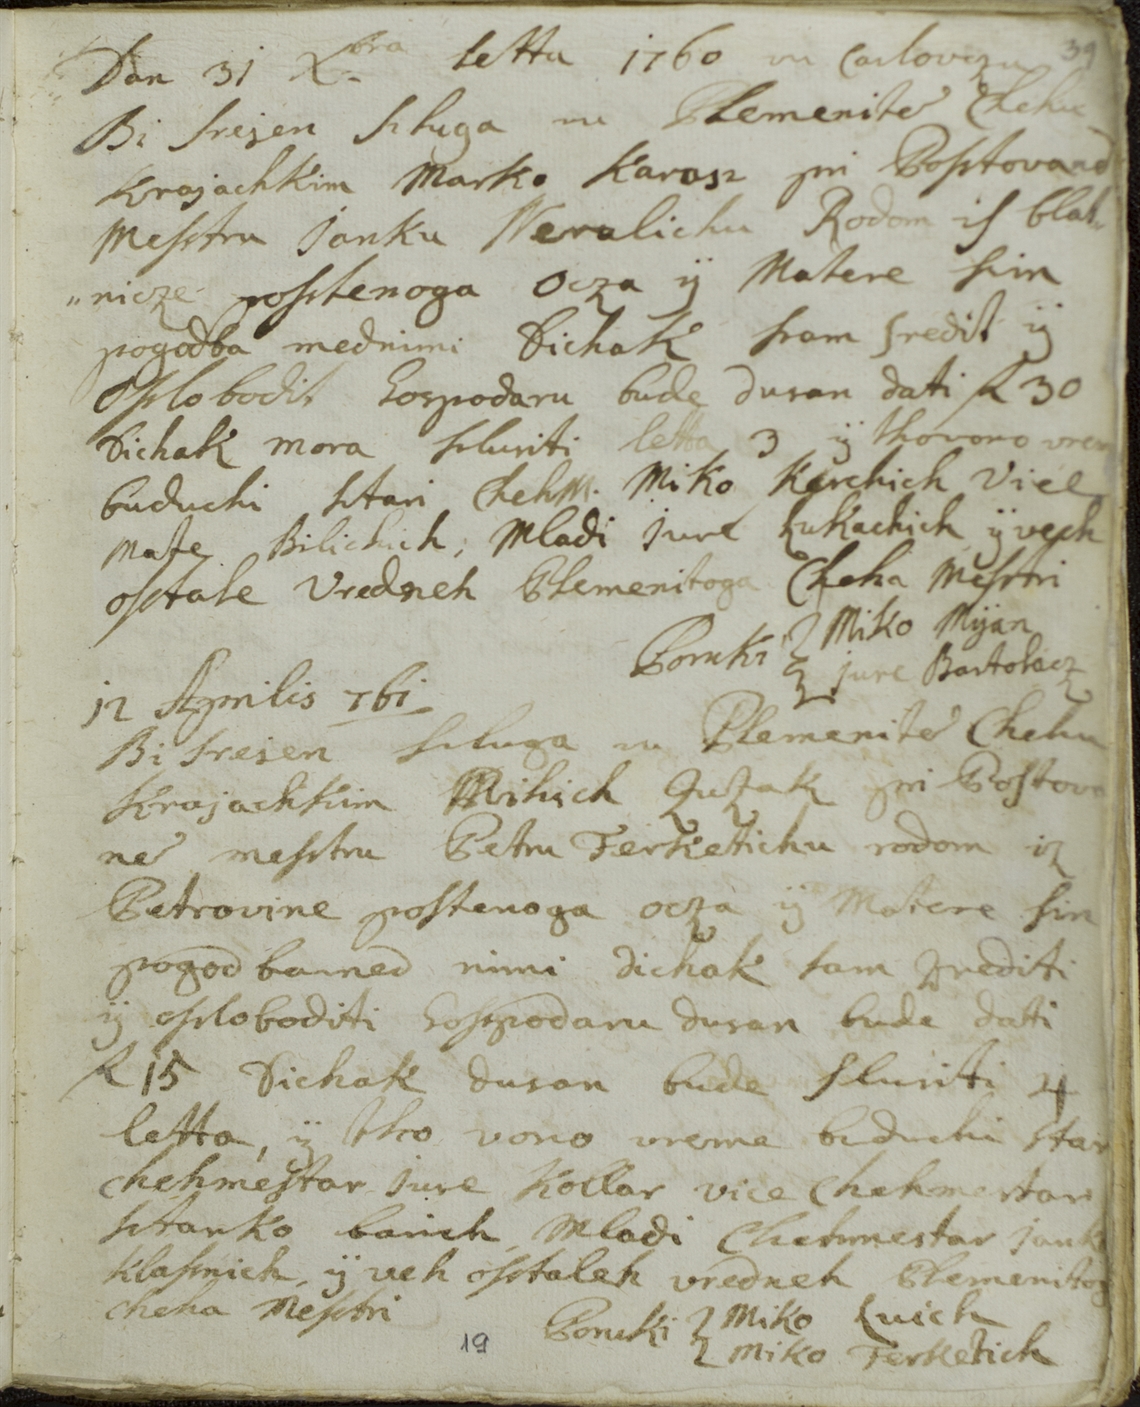 39
Dan 31 Xbra Letta 1760 vu Carlovczu
Bi srejen sluga vu Plemenite Chehu
Krajachkim Marko Karasz pri Postovane
Messtru Janku Neralichu Rodom is blat„
„nicze posstenoga Ocza ÿ Matere sin
pogodba mednimi Dichak sram sredit ÿ
osslobodit Gospodaru bude dusan dati R 30
Dichak mora slusiti letta 3 ÿ thovono vrem
buduchi sstari ChehM. Miko Karchich Vice
Mate Bilichich, Mladi Jure Lukachich ÿ vesh
osstale Vredneh Plemenitoga Cheha Messtri
Poruki Miko Mÿan
Jure Bartolacz
12 Aprilis 761
Bi srejen ssluga vu Plemenite Chehu
Krajachkim Mihich Juzak pri Postova
ne messtru Petru Ferketichu rodom iz
Petrovine postenoga ocza ÿ Matere sin
pogodbamed nimi dichak sam zrediti
ÿ osloboditi Gosspodaru dusan bude datti
R 15 Dichak dusan bude slusiti 4
letta, ÿ tho vono vreme buduchi star
chehmestar Jure Kollar vice Chehmestar
sstanko barich Mladi Chehmestar Jank
Klasnich, ÿ veh osstaleh vredneh Plemenitog
Cheha Messtri
Poruki Miko Luich
Miko Ferketich
19